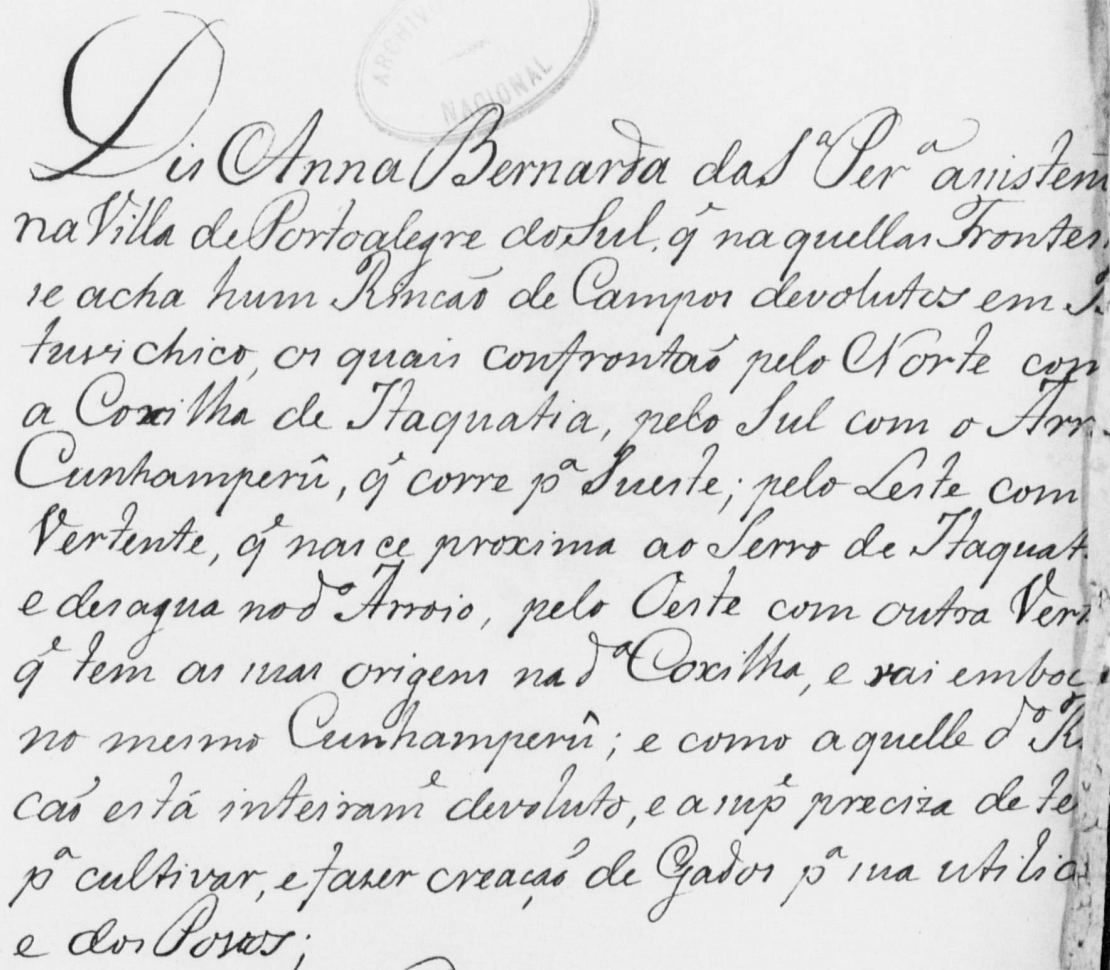 ARCHIVO
NACIONAL
Dis Anna Bernarda da S.ª Per.ª assisten
na Villa de Portoalegre do Sul, q̃ naquellas Fronte
se acha hum Rincaõ de Campos devolutos em
chico, os quais confrontaõ pelo Norte con
a Coxilha de Itaquatia, pelo Sul com o Arr
Cunhamperû, q̃ corre p.ª Sueste; pelo Leste com
Vertente, q̃ nasce proxima ao Serro de Itaquat
e desagua no d.º Arroio, pelo Oeste com outra Ver
q̃ tem as suas origens na d.ª Coxilha, e vai emboc
no mesmo Cunhamperû; e como aquelle d.º R
caõ está inteiram.e devoluto, e a sup.e preciza de te
p.ª cultivar, e fazer creaçaõ de Gados p.ª sua utili
e dos Povos;